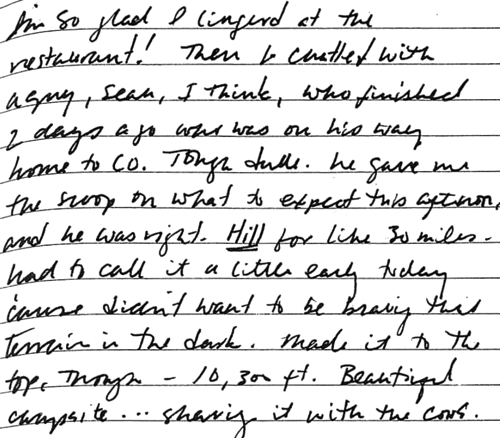 I'm so glad I lingerd at the
restaurant! Then I chatted with
a guy, Sean, I think, who finished
2 days ago who was on his way
home to CO. Tough dude. he gave me
the scoop on what to expect this afternoon,
and he was right. Hill for like 30 miles.
had to call it a little early today
'cause didn't want to be braving this
terrain in the dark. made it to the
top, though - 10,300 ft. Beautiful
campsite... sharing it with the cows.